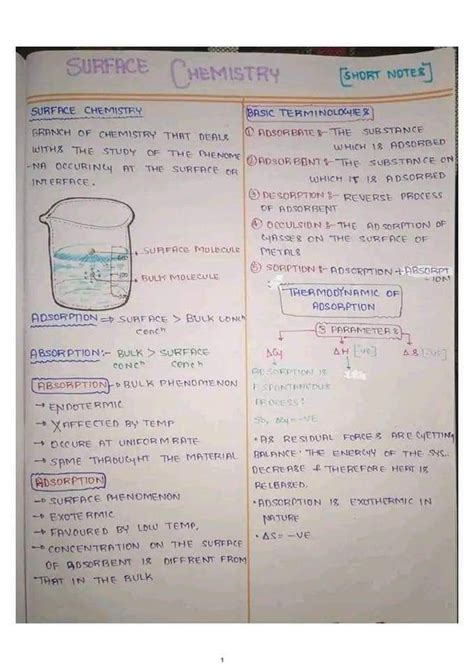 SURFACE CHEMISTRY
[SHORT NOTES]
SURFACE CHEMISTRY
BRANCH OF CHEMISTRY THAT DEALS
WITHS THE STUDY OF THE PHENOME
-NA OCCURING AT THE SURFACE OR
INTERFACE.
SURFACE MOLECULE
BULK MOLECULE
ADSORPTION ⇒ SURFACE > BULK CONCH
CONCH
ABSORPTION:- BULK > SURFACE
CONCH CONCH
ABSORPTION → BULK PHENOMENON
→ ENDOTERMIC
→ X AFFECTED BY TEMP
→ OCCURE AT UNIFORM RATE
→ SAME THROUGHT THE MATERIAL
ADSORPTION
→ SURFACE PHENOMENON
→ EXOTERMIC
→ FAVOURED BY LOW TEMP.
→ CONCENTRATION ON THE SURFACE
OF ADSORBENT IS DIFFRENT FROM
THAT IN THE BULK
BASIC TERMINOLOGIES
① ADSORBATE:- THE SUBSTANCE
WHICH IS ADSORBED
② ADSORBENT:- THE SUBSTANCE ON
WHICH IT IS ADSORBED
③ DESORPTION:- REVERSE PROCESS
OF ADSORBENT
④ OCCULSION:- THE ADSORPTION OF
GASSES ON THE SURFACE OF
METALS
⑤ SORPTION:- ADSORPTION + ABSORPT
-ION
THERMODYNAMIC OF
ADSORPTION
3 PARAMETERS
ΔG ΔH [-VE] ΔS [-VE]
ADSORPTION IS
SPONTANEOUS
PROCESS:
SO, ΔG = -VE
• AS RESIDUAL FORCES ARE GETTING
BALANCE THE ENERGY OF THE SYS..
DECREASE & THEREFORE HEAT IS
RELEASED.
• ADSORPTION IS EXOTHERMIC IN
NATURE
• ΔS = -VE
1